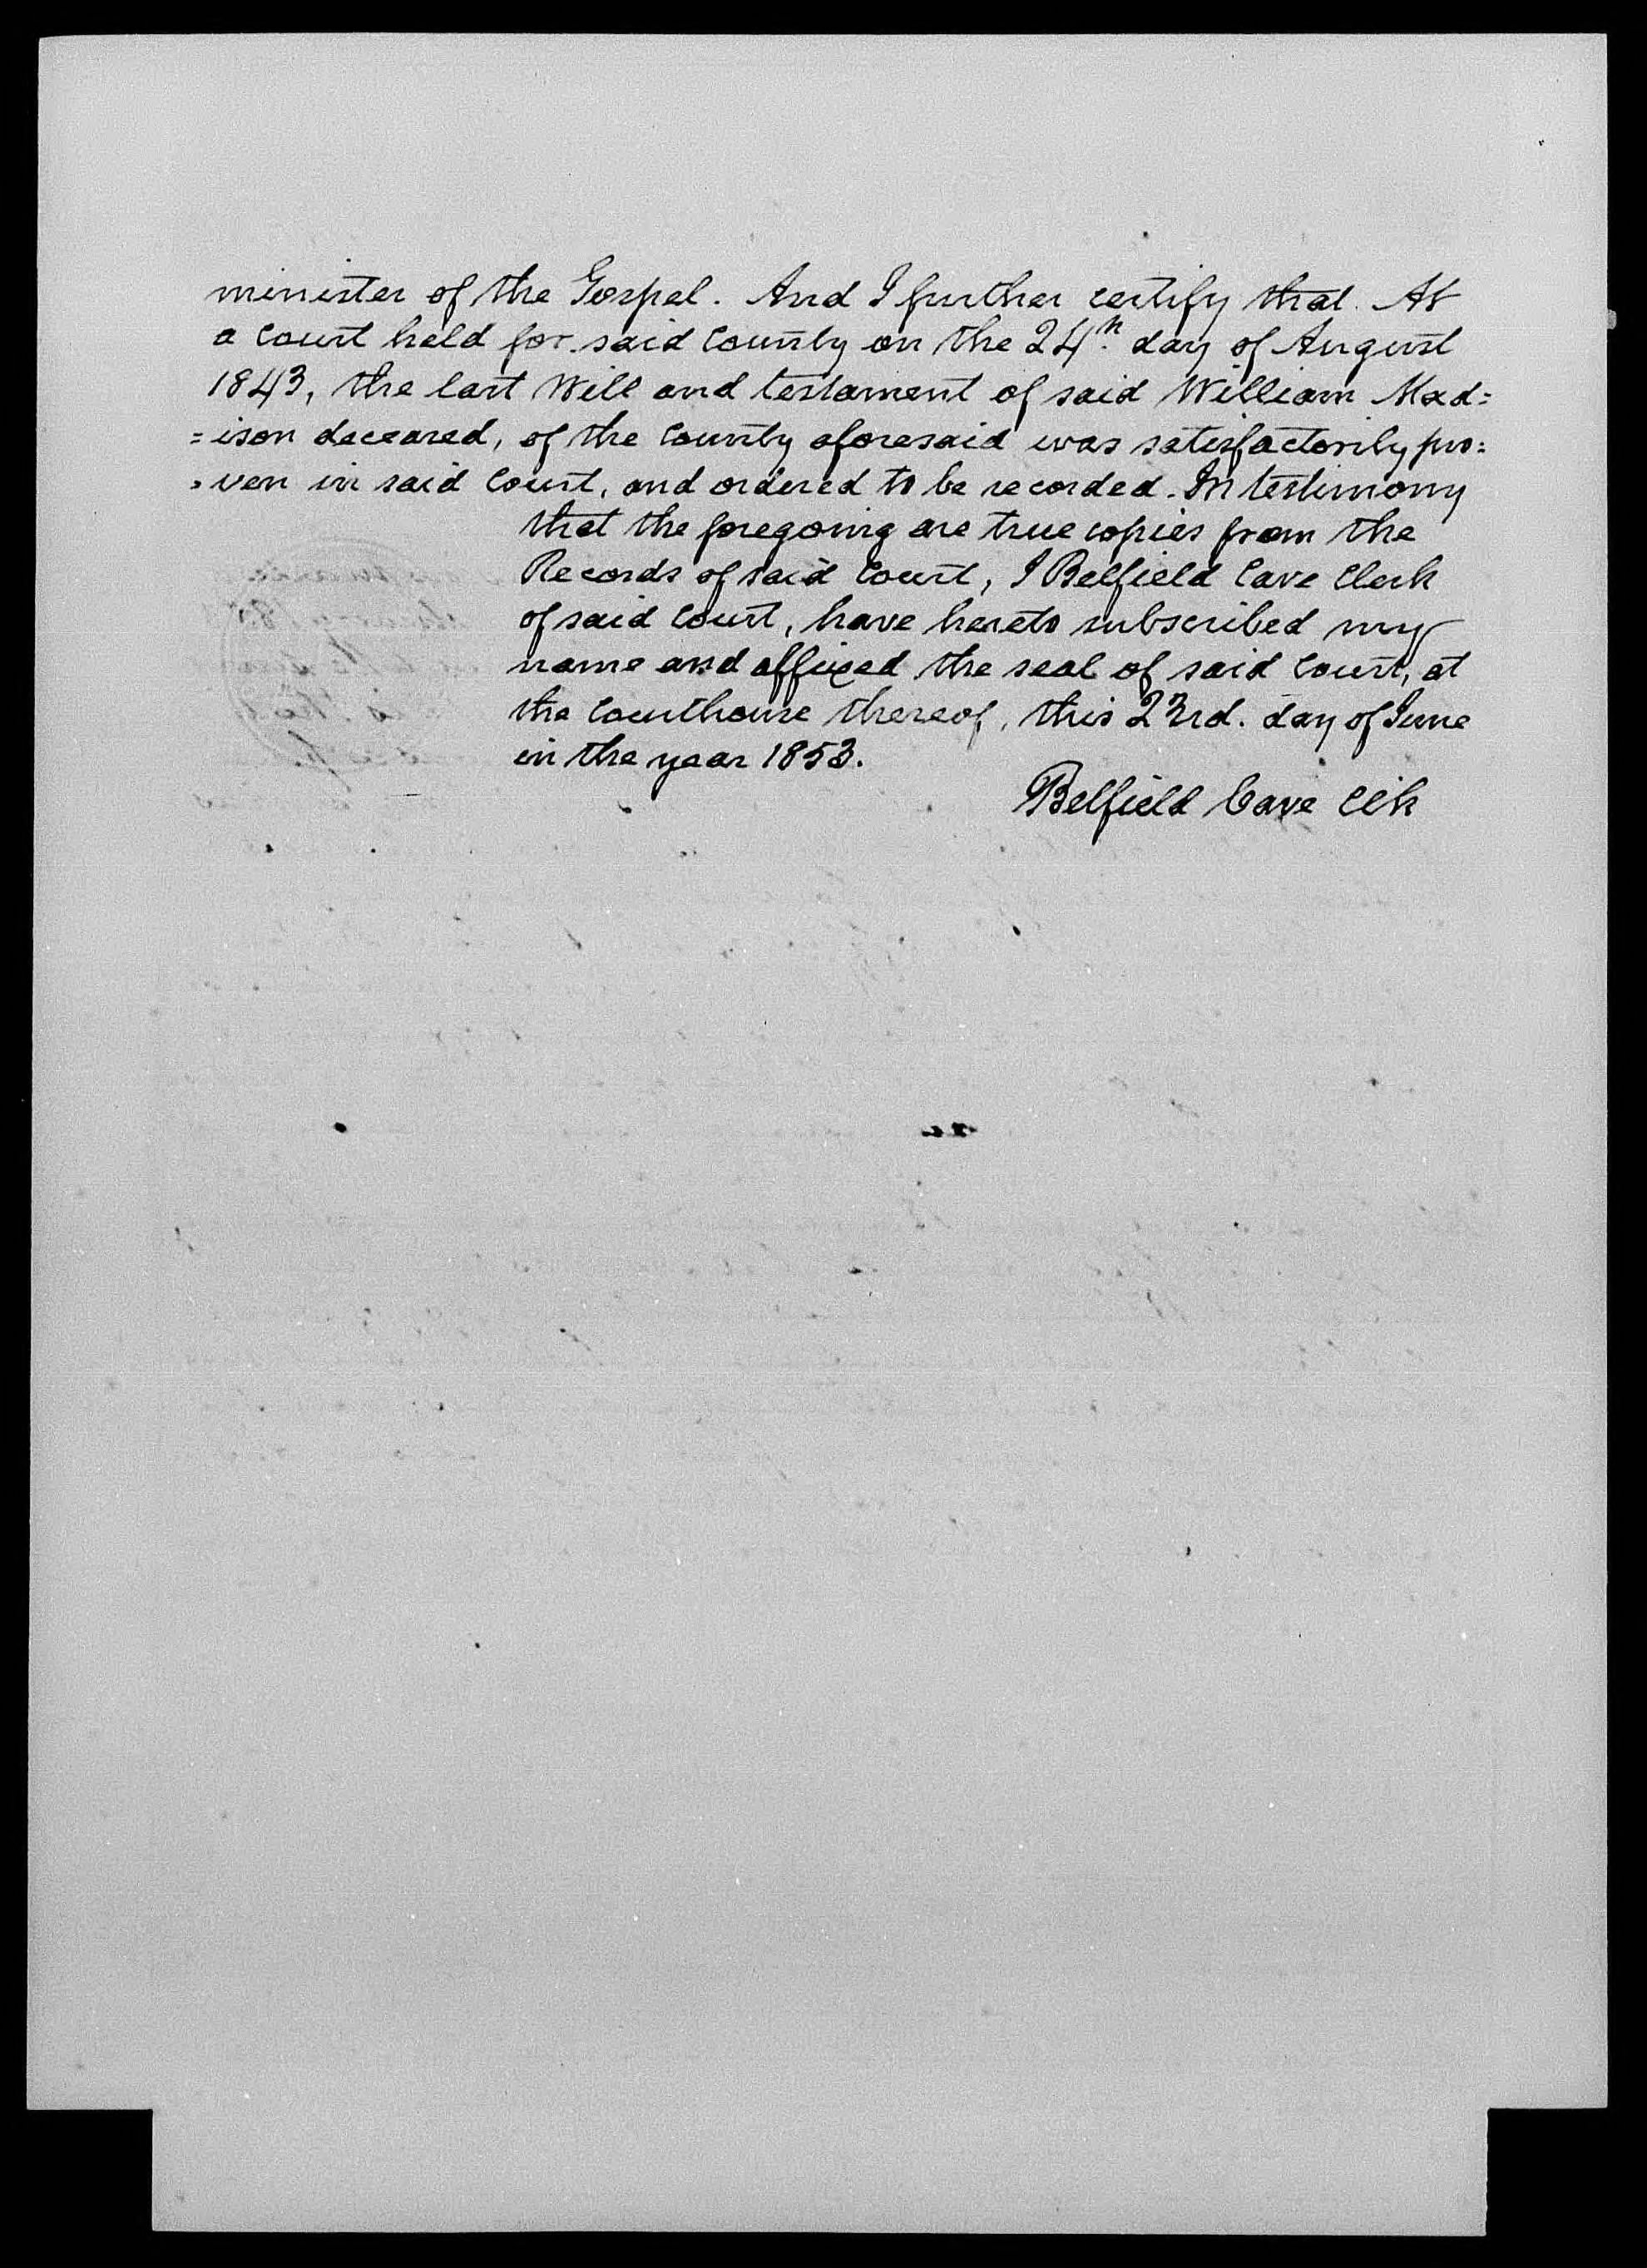 minister of the Gospel. And I further certify that. At
a Court held for said County on the 24th. day of August
1843, the last Will and testament of said William Mad=
=ison deceased, of the County aforesaid was satisfactorily pro=
=ven in said Court, and ordered to be recorded. In testimony
that the foregoing are true copies from the
Records of said Court, I Belfield Cave Clerk
of said Court, have hereto subscribed my
name and affixed the seal of said Court, at
the Courthouse thereof, this 23rd. day of June
in the year 1853.
Belfield Cave Clk